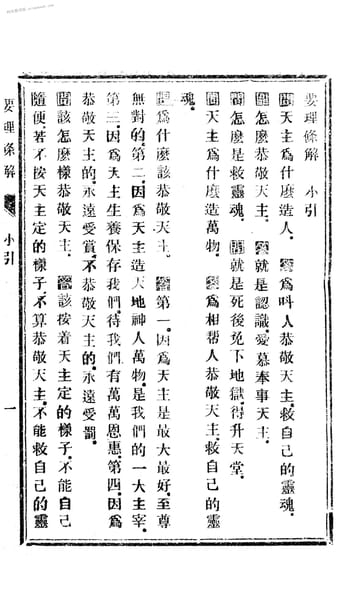 要理條解 小引
問天主爲什麼造人．答爲叫人恭敬天主．救自己的靈魂．
問怎麼是恭敬天主．答就是認識．愛慕．奉事天主．
問怎麼是救靈魂．答就是死後免下地獄．得升天堂．
問天主爲什麼造萬物．答爲相帮人恭敬天主．救自己的靈
魂．
問爲什麼該恭敬天主．答第一．因爲天主是最大最好．至尊
無對的．第二．因爲天主造天地神人萬物．是我們的一大主宰．
第三．因爲天主生養保存我們．待我們有萬萬恩惠．第四．因爲
恭敬天主的．永遠受賞．不恭敬天主的．永遠受罰．
問該怎麼樣恭敬天主．答該按着天主定的樣子．不能自己
隨便．若不按天主定的樣子．不算恭敬天主．不能救自己的靈
要理條解 小引 一